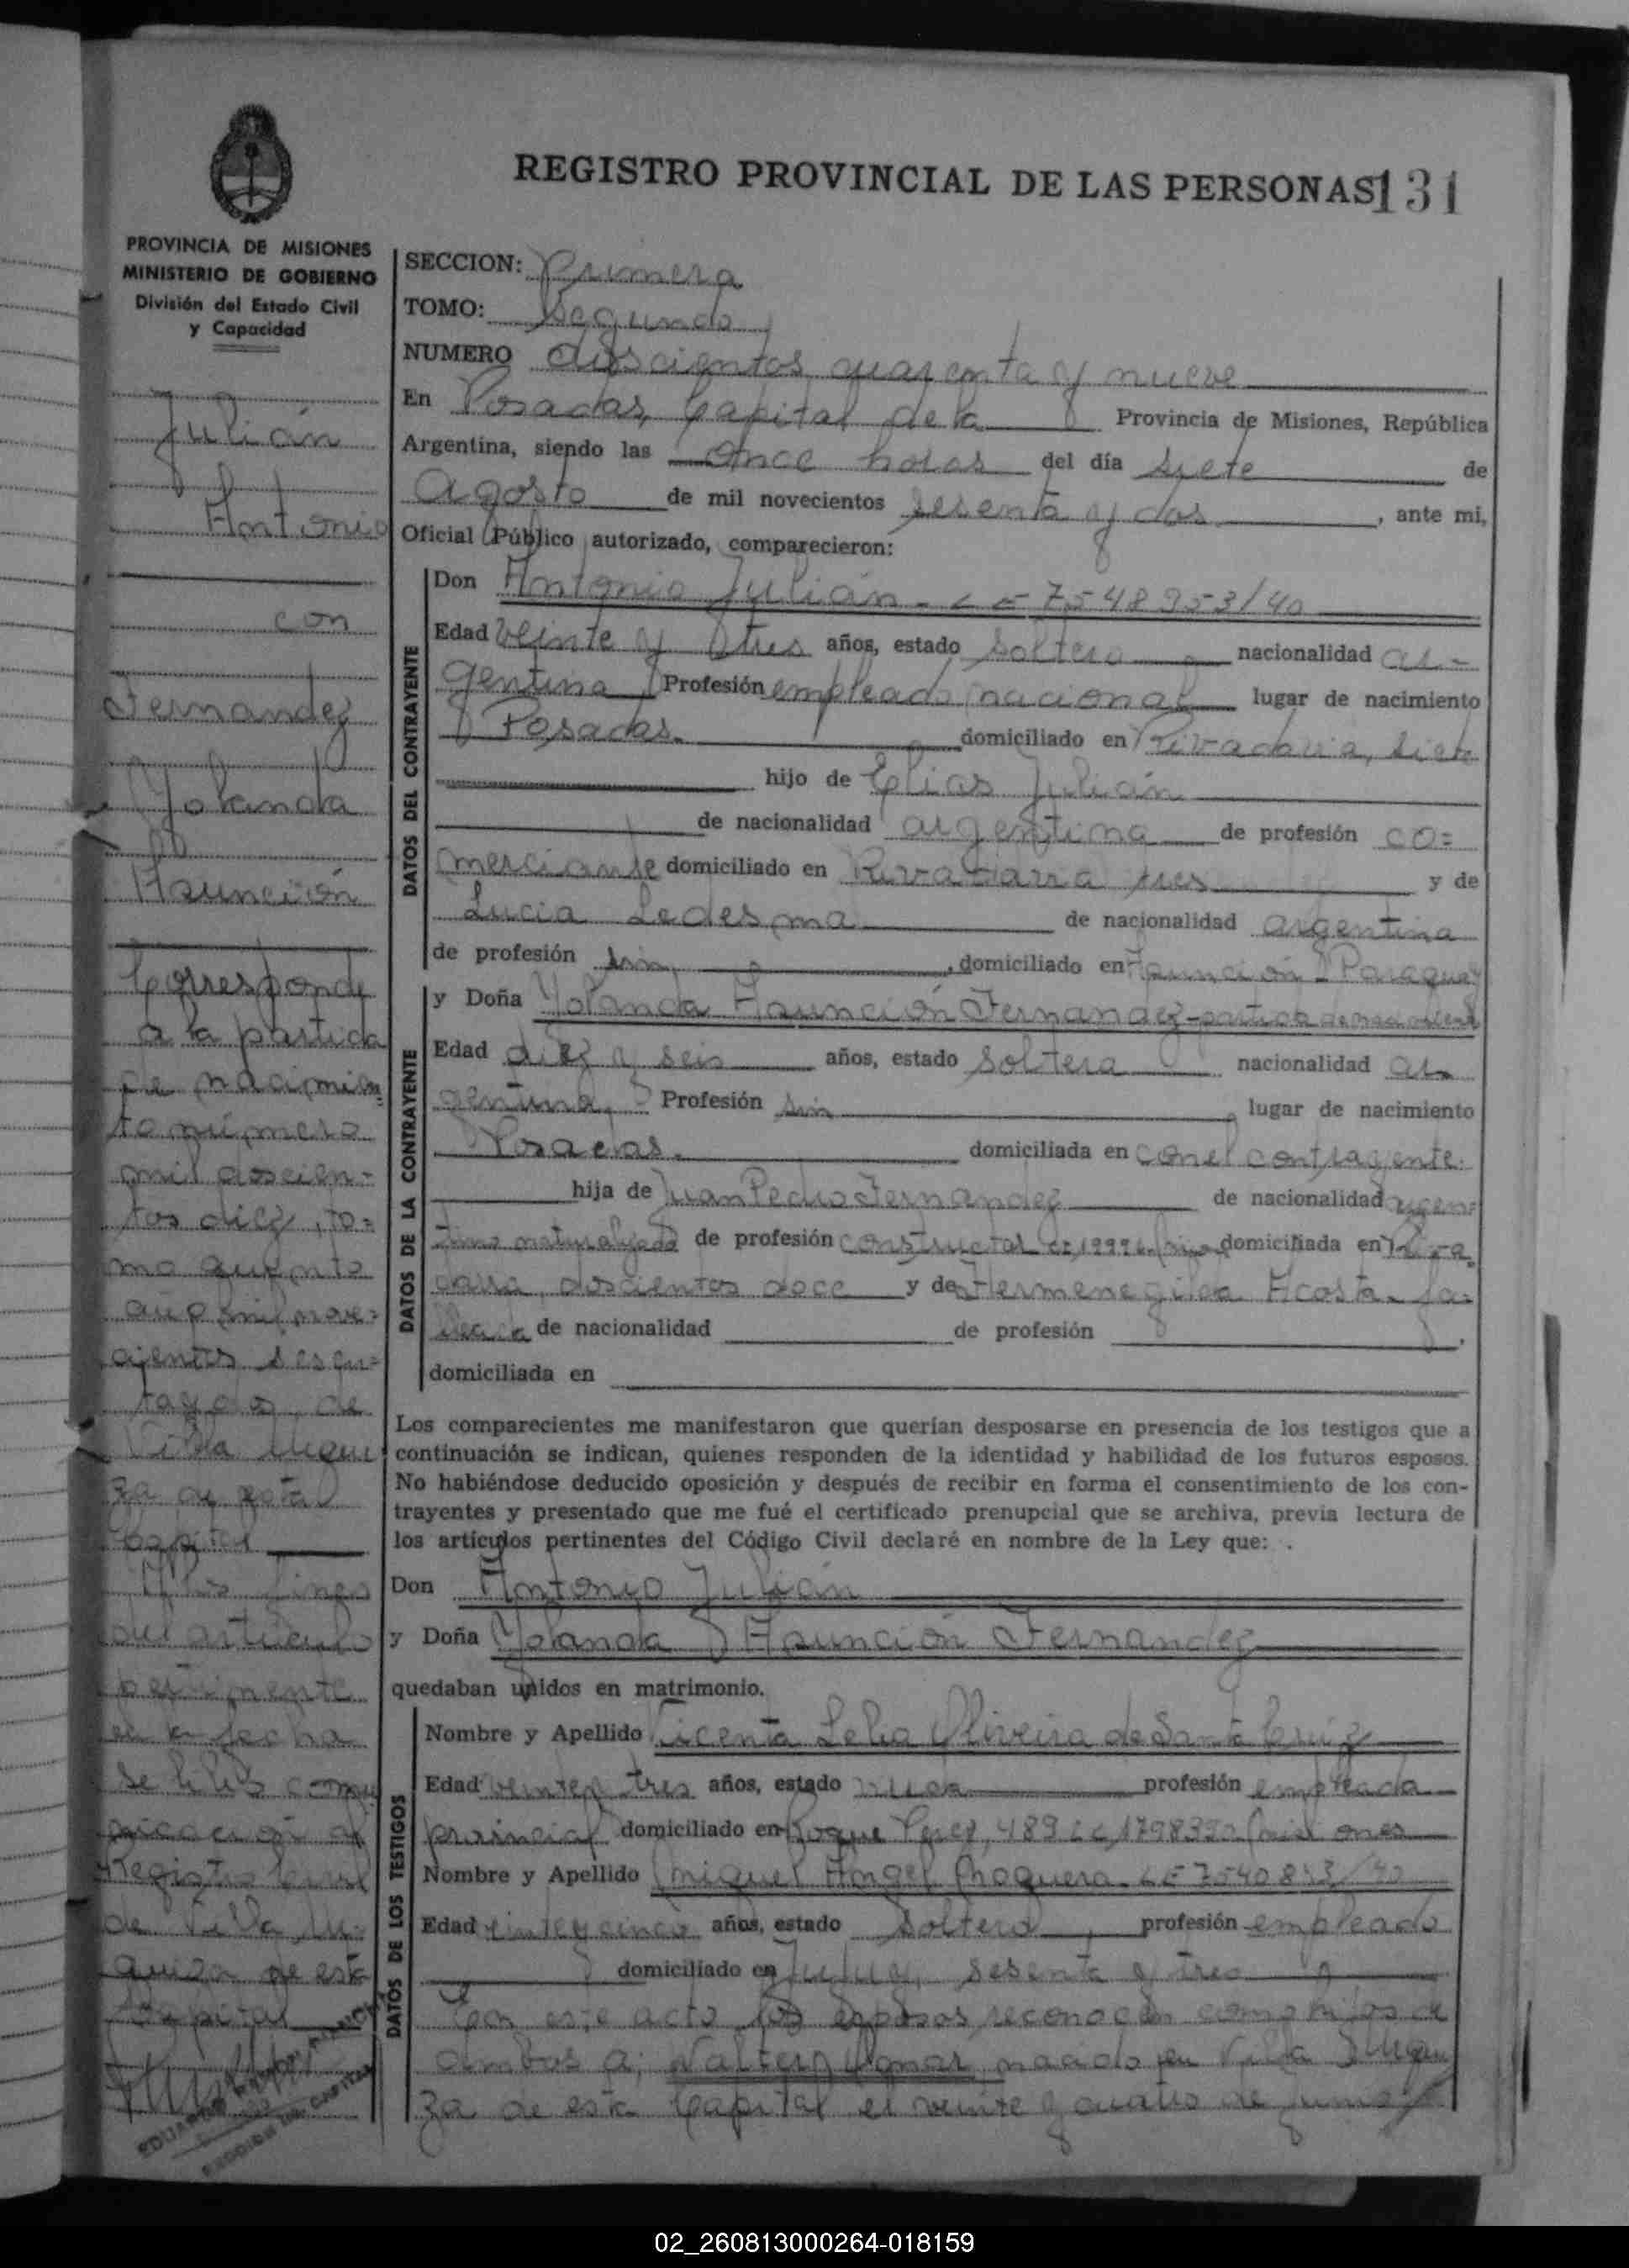 REGISTRO PROVINCIAL DE LAS PERSONAS 131
PROVINCIA DE MISIONES
MINISTERIO DE GOBIERNO
División del Estado Civil
y Capacidad
Julián
Antonio
con
Fernandez
Yolanda
Asunción
Corresponde
a la partida
de nacimien
to número
mil doscien-
tos diez, to=
mo quinto
año mil nove=
cientos sesen=
ta y dos, de
Villa Urqui
za de esta
Capital
A los fines
del artículo
pertinente
en la fecha
se libró comu
nicación al
Registro Civil
de Villa Ur-
quiza de esta
Capital
SECCION: Primera
TOMO: Segundo
NUMERO doscientos cuarenta y nueve
En Posadas, Capital de la Provincia de Misiones, República
Argentina, siendo las Once horas del día siete de
Agosto de mil novecientos sesenta y dos, ante mi,
Oficial Público autorizado, comparecieron:
DATOS DEL CONTRAYENTE
Don Antonio Julián - LE 7548953/40
Edad veinte y tres años, estado soltero nacionalidad ar-
gentina Profesión empleado nacional lugar de nacimiento
Posadas. domiciliado en Rivadavia, siete
hijo de Elias Julián
de nacionalidad argentina de profesión co=
merciante domiciliado en Rivadavia tres y de
Lucia Ledesma de nacionalidad argentina
de profesión sin, domiciliado en Asunción - Paraguay
DATOS DE LA CONTRAYENTE
y Doña Yolanda Asunción Fernandez - partida de nacimiento
Edad diez y seis años, estado soltera nacionalidad ar-
gentina, Profesión sin lugar de nacimiento
Posadas. domiciliada en con el contrayente.
hija de Juan Pedro Fernandez de nacionalidad argen=
tino naturalizado de profesión constructor domiciliada en Riva
davia, doscientos doce y de Hermenegilda Acosta - fa-
llecida de nacionalidad de profesión
domiciliada en
Los comparecientes me manifestaron que querían desposarse en presencia de los testigos que a
continuación se indican, quienes responden de la identidad y habilidad de los futuros esposos.
No habiéndose deducido oposición y después de recibir en forma el consentimiento de los con-
trayentes y presentado que me fué el certificado prenupcial que se archiva, previa lectura de
los artículos pertinentes del Código Civil declaré en nombre de la Ley que:
Don Antonio Julián
y Doña Yolanda Asunción Fernandez
quedaban unidos en matrimonio.
DATOS DE LOS TESTIGOS
Nombre y Apellido Vicenta Lelia Oliveira de Santa Cruz
Edad veinte y tres años, estado viuda profesión empleada
provincial domiciliado en Roque Perez, 489 Misiones
Nombre y Apellido Miguel Angel Noguera - LE 7540843/40
Edad veinte y cinco años, estado soltero, profesión empleado
domiciliado en Jujuy, sesenta y tres
En este acto los esposos reconocen como hijos de
ambos a; Walter Omar nacido en Villa Urqui
za de esta Capital el veinte y cuatro de junio
02_260813000264-018159